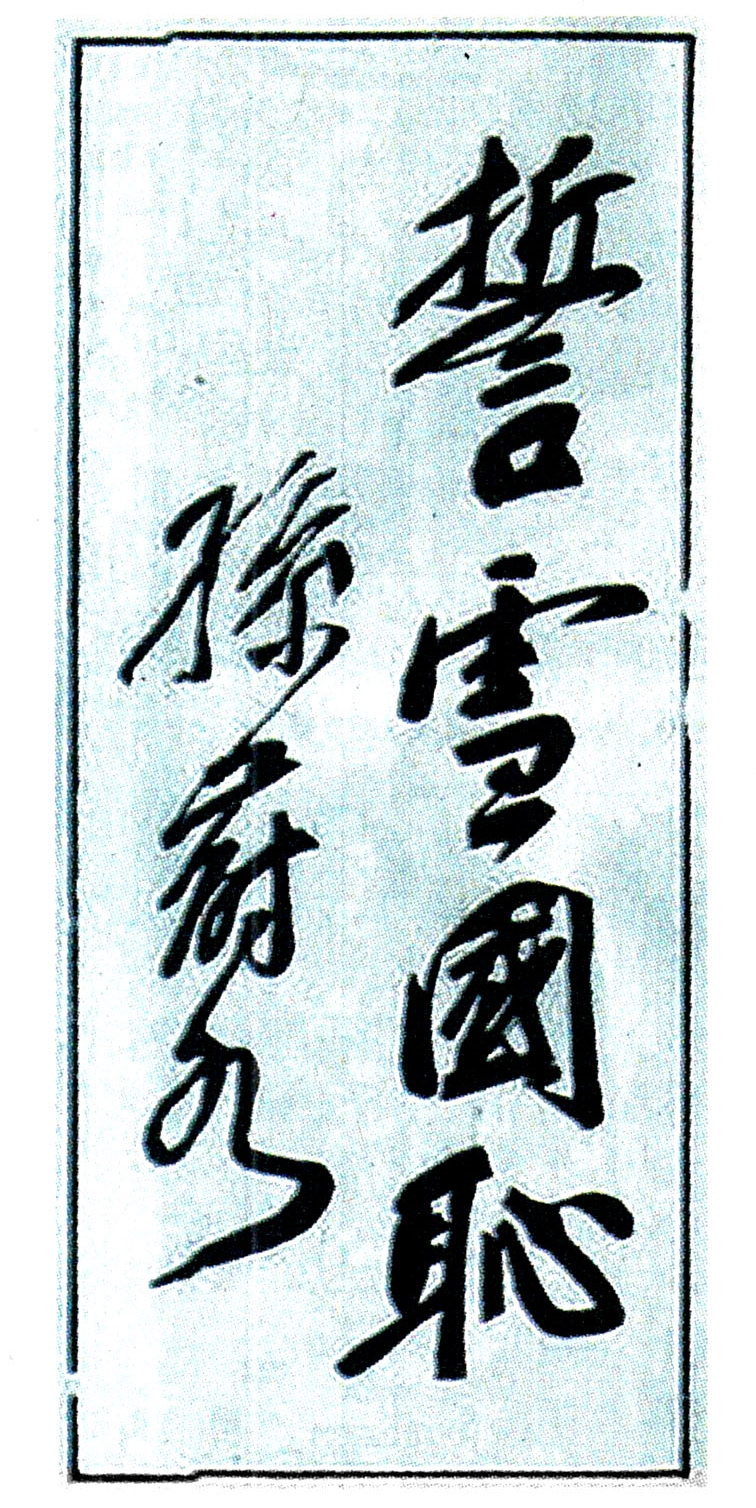 誓雪國恥
孫蔚如